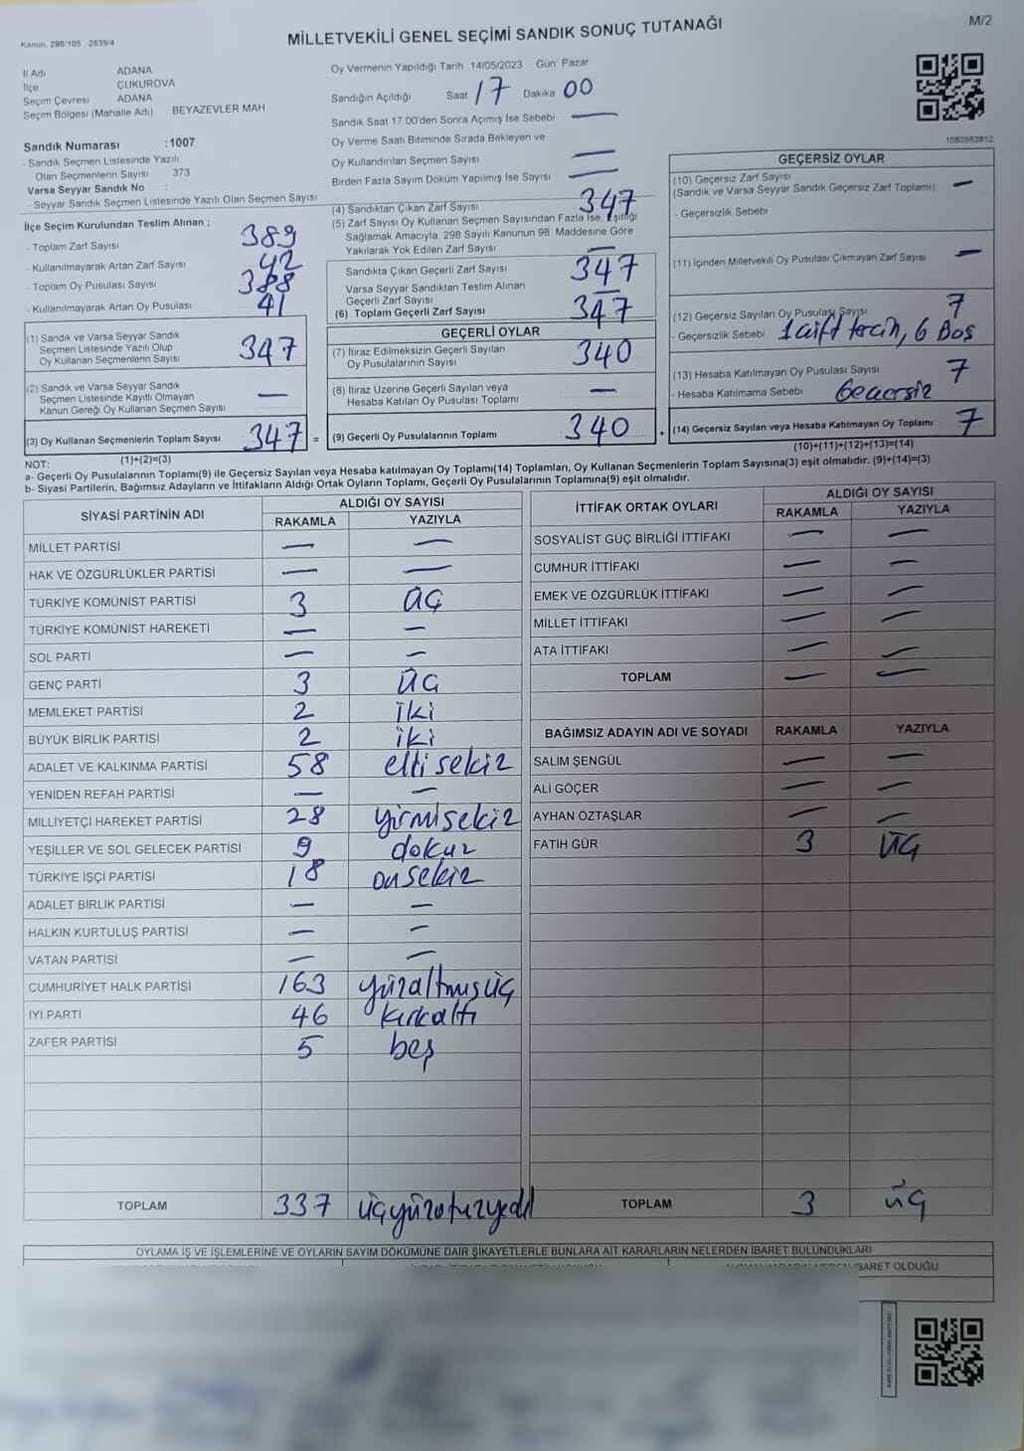 Kanun, 298/105 -2839/4
MİLLETVEKİLİ GENEL SEÇİMİ SANDIK SONUÇ TUTANAĞI
M/2
İl Adı ADANA
İlçe ÇUKUROVA
Seçim Çevresi ADANA
Seçim Bölgesi (Mahalle Adı) BEYAZEVLER MAH
Sandık Numarası :1007
- Sandık Seçmen Listesinde Yazılı
Olan Seçmenlerin Sayısı 373
Varsa Seyyar Sandık No :
- Seyyar Sandık Seçmen Listesinde Yazılı Olan Seçmen Sayısı
Oy Vermenin Yapıldığı Tarih :14/05/2023 Gün: Pazar
Sandığın Açıldığı Saat 17 Dakika 00
Sandık Saat 17:00'den Sonra Açımış İse Sebebi —
Oy Verme Saati Bitiminde Sırada Bekleyen ve
Oy Kullandırılan Seçmen Sayısı —
Birden Fazla Sayım Döküm Yapılmış İse Sayısı —
İlçe Seçim Kurulundan Teslim Alınan ;
- Toplam Zarf Sayısı 389
- Kullanılmayarak Artan Zarf Sayısı 42
- Toplam Oy Pusulası Sayısı 388
- Kullanılmayarak Artan Oy Pusulası 41
(1) Sandık ve Varsa Seyyar Sandık
Seçmen Listesinde Yazılı Olup
Oy Kullanan Seçmenlerin Sayısı 347
(2) Sandık ve Varsa Seyyar Sandık
Seçmen Listesinde Kayıtlı Olmayan
Kanun Gereği Oy Kullanan Seçmen Sayısı —
(3) Oy Kullanan Seçmenlerin Toplam Sayısı 347 =
(1)+(2)=(3)
(4) Sandıktan Çıkan Zarf Sayısı 347
(5) Zarf Sayısı Oy Kullanan Seçmen Sayısından Fazla İse, Eşitliği
Sağlamak Amacıyla, 298 Sayılı Kanunun 98. Maddesine Göre
Yakılarak Yok Edilen Zarf Sayısı —
Sandıkta Çıkan Geçerli Zarf Sayısı 347
Varsa Seyyar Sandıktan Teslim Alınan
Geçerli Zarf Sayısı —
(6) Toplam Geçerli Zarf Sayısı 347
GEÇERLİ OYLAR
(7) İtiraz Edilmeksizin Geçerli Sayılan
Oy Pusulalarının Sayısı 340
(8) İtiraz Üzerine Geçerli Sayılan veya
Hesaba Katılan Oy Pusulası Toplamı —
(9) Geçerli Oy Pusulalarının Toplamı 340 +
GEÇERSİZ OYLAR
(10) Geçersiz Zarf Sayısı
(Sandık ve Varsa Seyyar Sandık Geçersiz Zarf Toplamı) —
- Geçersizlik Sebebi
(11) İçinden Milletvekili Oy Pusulası Çıkmayan Zarf Sayısı —
(12) Geçersiz Sayılan Oy Pusulası Sayısı 7
- Geçersizlik Sebebi 1 çift tercih, 6 Boş
(13) Hesaba Katılmayan Oy Pusulası Sayısı 7
- Hesaba Katılmama Sebebi Geçersiz
(14) Geçersiz Sayılan veya Hesaba Katılmayan Oy Toplamı 7
(10)+(11)+(12)+(13)=(14)
NOT:
a- Geçerli Oy Pusulalarının Toplamı(9) ile Geçersiz Sayılan veya Hesaba katılmayan Oy Toplamı(14) Toplamları, Oy Kullanan Seçmenlerin Toplam Sayısına(3) eşit olmalıdır. (9)+(14)=(3)
b- Siyasi Partilerin, Bağımsız Adayların ve İttifakların Aldığı Ortak Oyların Toplamı, Geçerli Oy Pusulalarının Toplamına(9) eşit olmalıdır.
SİYASİ PARTİNİN ADI ALDIĞI OY SAYISI
RAKAMLA YAZIYLA
MİLLET PARTİSİ — —
HAK VE ÖZGÜRLÜKLER PARTİSİ — —
TÜRKİYE KOMÜNİST PARTİSİ 3 üç
TÜRKİYE KOMÜNİST HAREKETİ — —
SOL PARTİ — —
GENÇ PARTİ 3 üç
MEMLEKET PARTİSİ 2 iki
BÜYÜK BİRLİK PARTİSİ 2 iki
ADALET VE KALKINMA PARTİSİ 58 ellisekiz
YENİDEN REFAH PARTİSİ — —
MİLLİYETÇİ HAREKET PARTİSİ 28 yirmisekiz
YEŞİLLER VE SOL GELECEK PARTİSİ 9 dokuz
TÜRKİYE İŞÇİ PARTİSİ 18 onsekiz
ADALET BİRLİK PARTİSİ — —
HALKIN KURTULUŞ PARTİSİ — —
VATAN PARTİSİ — —
CUMHURİYET HALK PARTİSİ 163 yüzaltmışüç
İYİ PARTİ 46 kırkaltı
ZAFER PARTİSİ 5 beş
TOPLAM 337 üçyüzotuzyedi
İTTİFAK ORTAK OYLARI ALDIĞI OY SAYISI
RAKAMLA YAZIYLA
SOSYALİST GÜÇ BİRLİĞİ İTTİFAKI — —
CUMHUR İTTİFAKI — —
EMEK VE ÖZGÜRLÜK İTTİFAKI — —
MİLLET İTTİFAKI — —
ATA İTTİFAKI — —
TOPLAM — —
BAĞIMSIZ ADAYIN ADI VE SOYADI RAKAMLA YAZIYLA
SALİM ŞENGÜL — —
ALİ GÖÇER — —
AYHAN ÖZTAŞLAR — —
FATİH GÜR 3 üç
TOPLAM 3 üç
OYLAMA İŞ VE İŞLEMLERİNE VE OYLARIN SAYIM DÖKÜMÜNE DAİR ŞİKAYETLERLE BUNLARA AİT KARARLARIN NELERDEN İBARET BULUNDUKLARI
İBARET OLDUĞU